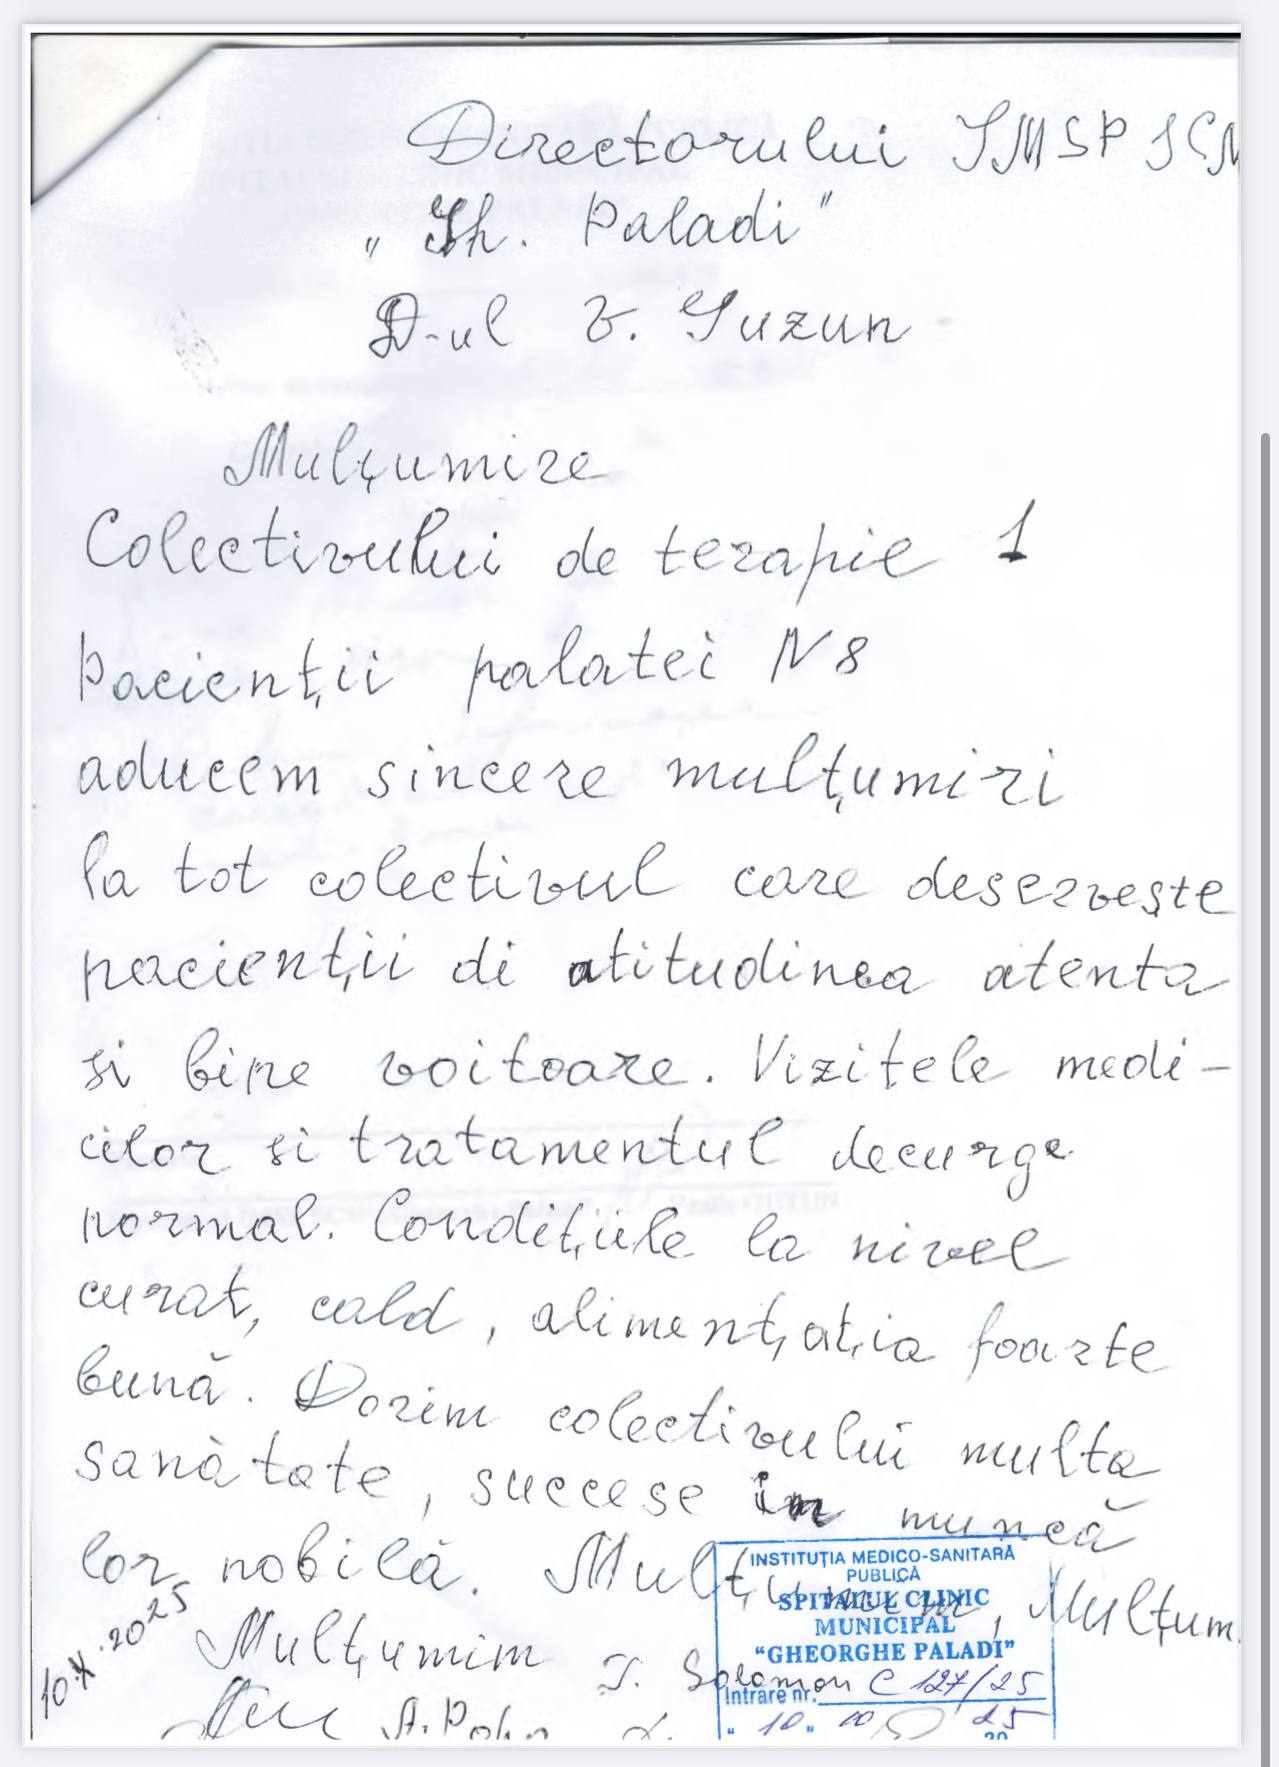 Directorului IMSP SCM
„Gh. Paladi”
D-ul V. Guzun
Mulțumire
Colectivului de terapie 1
Pacienții palatei N 8
aducem sincere mulțumiri
la tot colectivul care deservește
pacienții di atitudinea atenta
si bine voitoare. Vizitele medi-
cilor si tratamentul decurge
normal. Condițiile la nivel
curat, cald, alimentația foarte
bună. Dorim colectivului multa
sanătate, succese in muncă
lor nobilă. Mulțumim, Mulțum
10.X.2025
Mulțumim I. Solomon
INSTITUȚIA MEDICO-SANITARĂ
PUBLICĂ
SPITALUL CLINIC
MUNICIPAL
“GHEORGHE PALADI”
Intrare nr. C 127/25
“ 10 „ 10 25